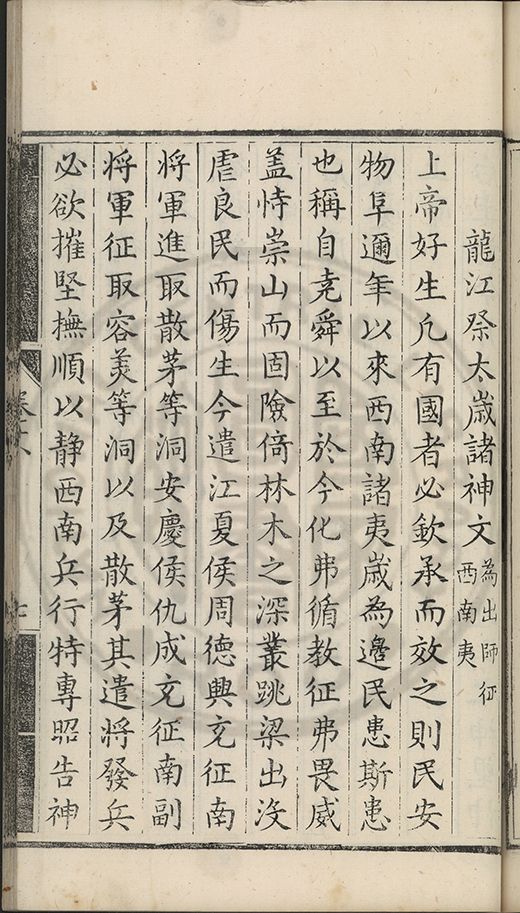 龍江祭太歲諸神文 為出師征西南夷
上帝好生凢有國者必欽承而效之則民安
物阜邇年以來西南諸夷歲為邊民患斯患
也稱自堯舜以至於今化弗循教征弗畏威
盖恃崇山而固險倚林木之深叢跳梁出没
虐良民而傷生今遣江夏侯周德興充征南
將軍進取散茅等洞安慶侯仇成充征南副
將軍征取容美等洞以及散茅其遣將發兵
必欲摧堅撫順以静西南兵行特專昭告神
七